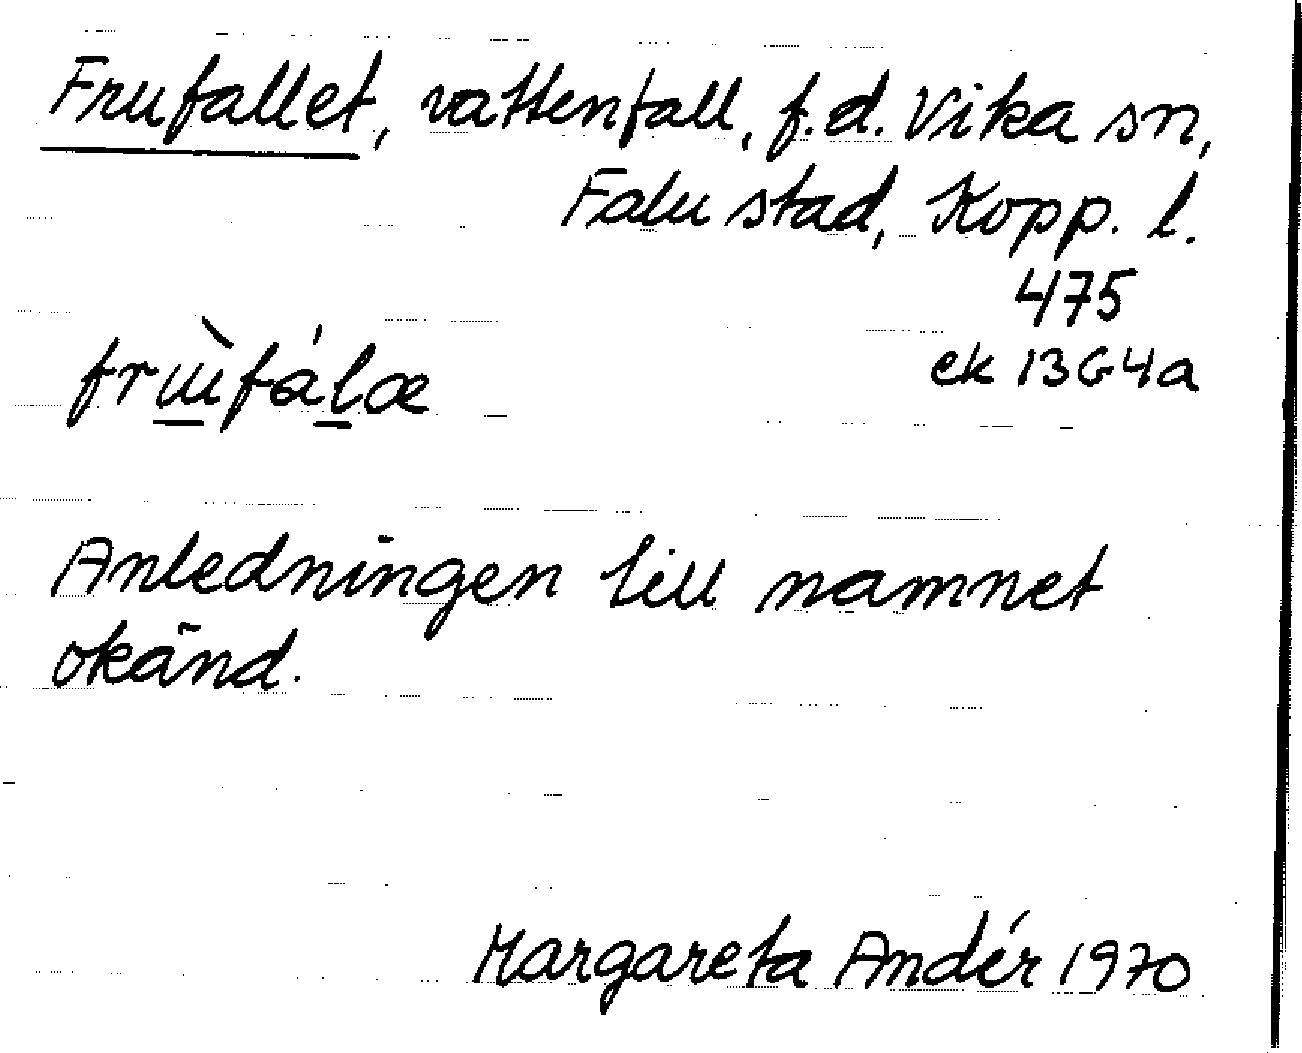 Frufallet, vattenfall, f.d. Vika sn,
Falu stad, Kopp. l.
475
ek 13G4a
Anledningen till namnet
okänd.
Margareta Andér 1970